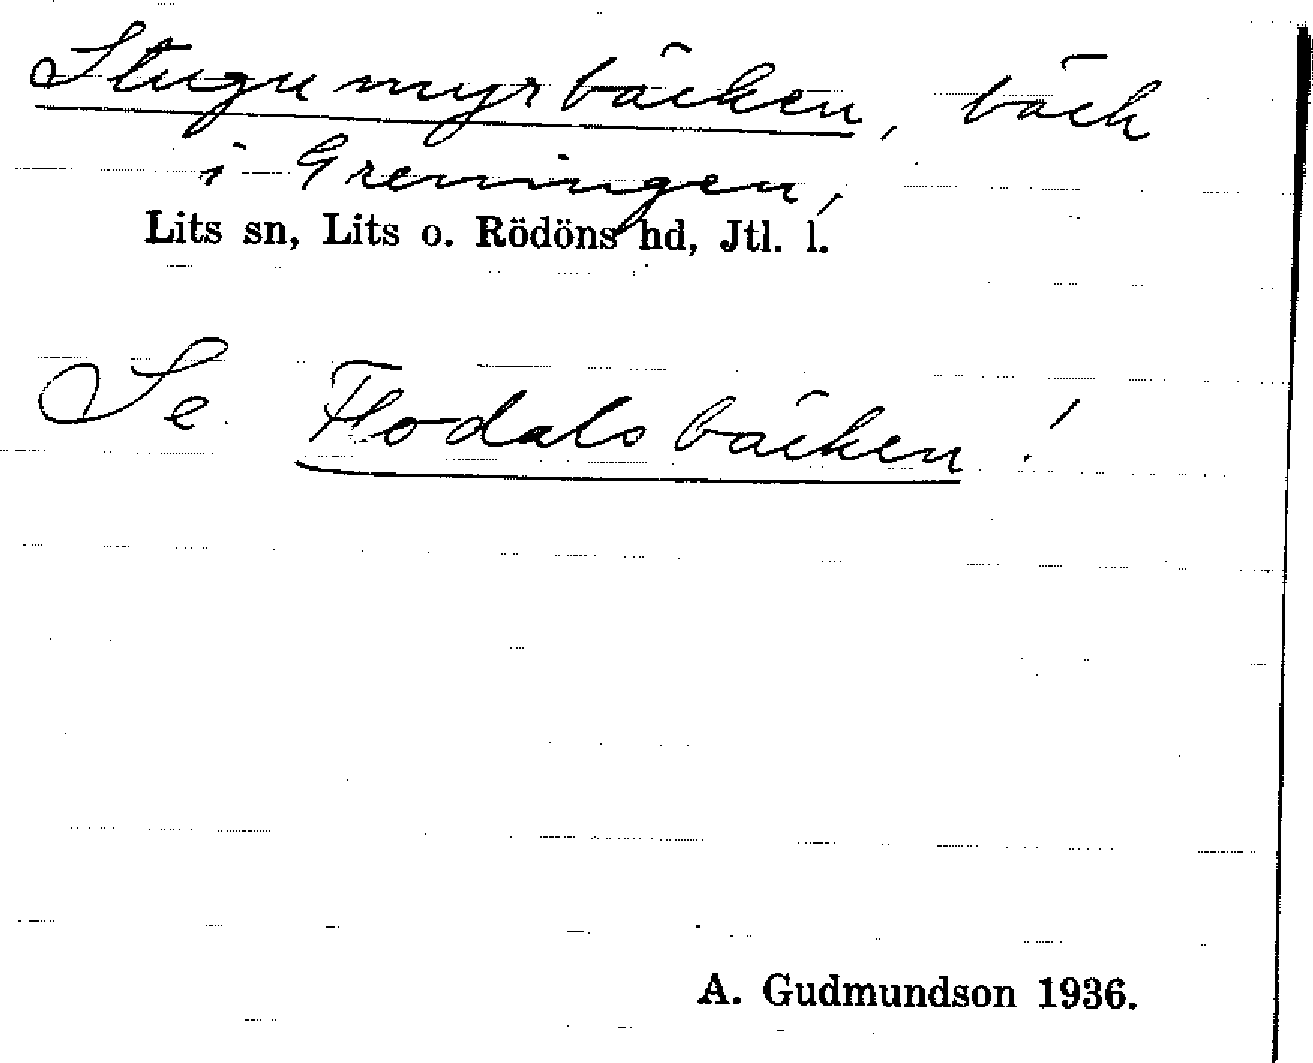 Stugumyrbäcken, bäck
i Greningen,
Lits sn, Lits o. Rödöns hd, Jtl. l.
Se Flodalsbäcken!
A. Gudmundson 1936.